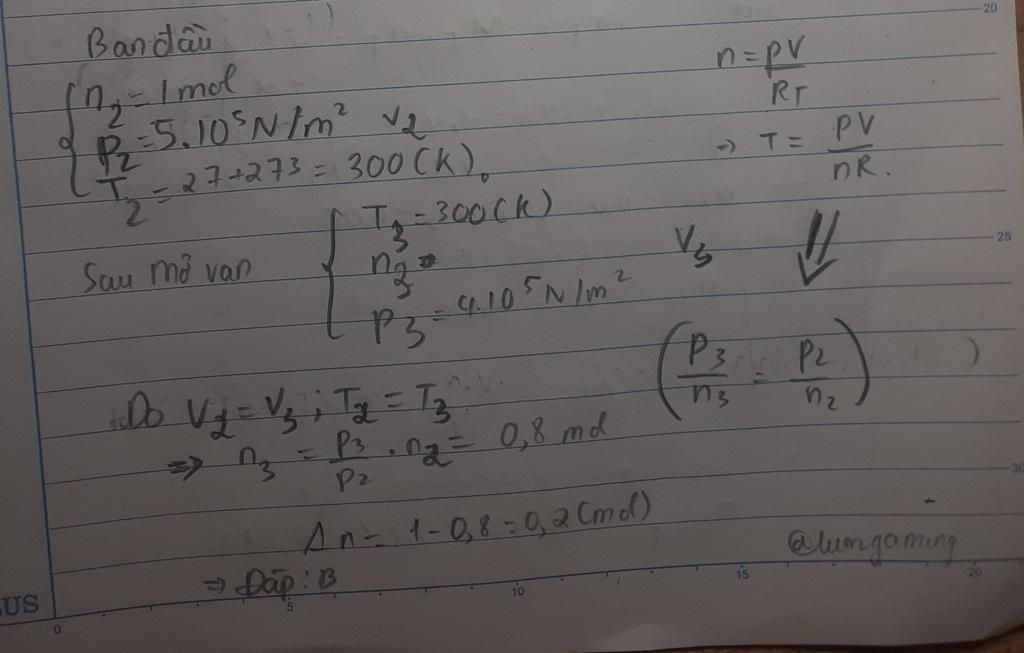 Ban đầu
n₂ = 1 mol
P₂ = 5.10⁵ N/m² V₂
T₂ = 27+273 = 300 (K).
n = PV/RT
→ T = PV/nR.
Sau mở van
T₃ = 300 (K)
n₃ =
P₃ = 4.10⁵ N/m²
V₃
⇓
(P₃/n₃ = P₂/n₂)
Do V₂ = V₃ ; T₂ = T₃
⇒ n₃ = P₃/P₂ . n₂ = 0,8 mol
Δn = 1 - 0,8 = 0,2 (mol)
⇒ Đáp : B
@lumgaming
US
0 5 10 15 20
20
25
30